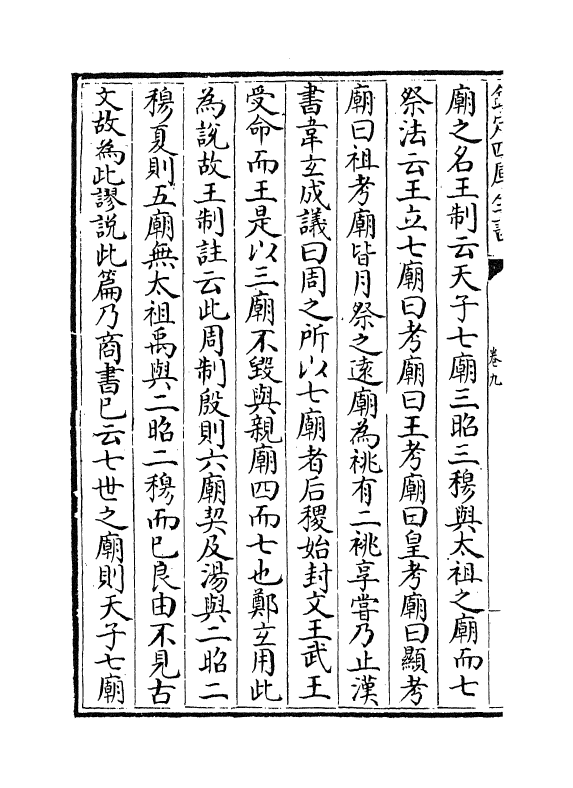 欽定四庫全書
卷九
廟之名王制云天子七廟三昭三穆與太祖之廟而七
祭法云王立七廟曰考廟曰王考廟曰皇考廟曰顯考
廟曰祖考廟皆月祭之遠廟為祧有二祧享嘗乃止漢
書韋玄成議曰周之所以七廟者后稷始封文王武王
受命而王是以三廟不毀與親廟四而七也鄭玄用此
為說故王制註云此周制殷則六廟契及湯與二昭二
穆夏則五廟無太祖禹與二昭二穆而已良由不見古
文故為此謬說此篇乃商書已云七世之廟則天子七廟